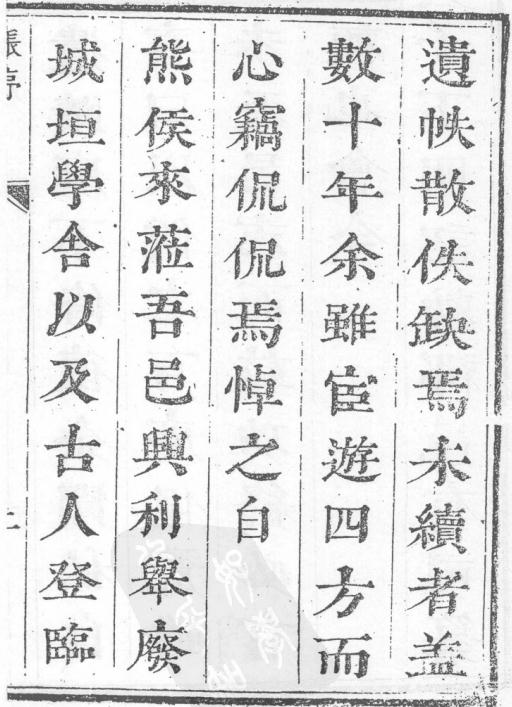 遺帙散佚缺焉未續者盖
數十年余雖宦遊四方而
心竊侃侃焉悼之自
熊侯來蒞吾邑興利舉廢
城垣學舍以及古人登臨